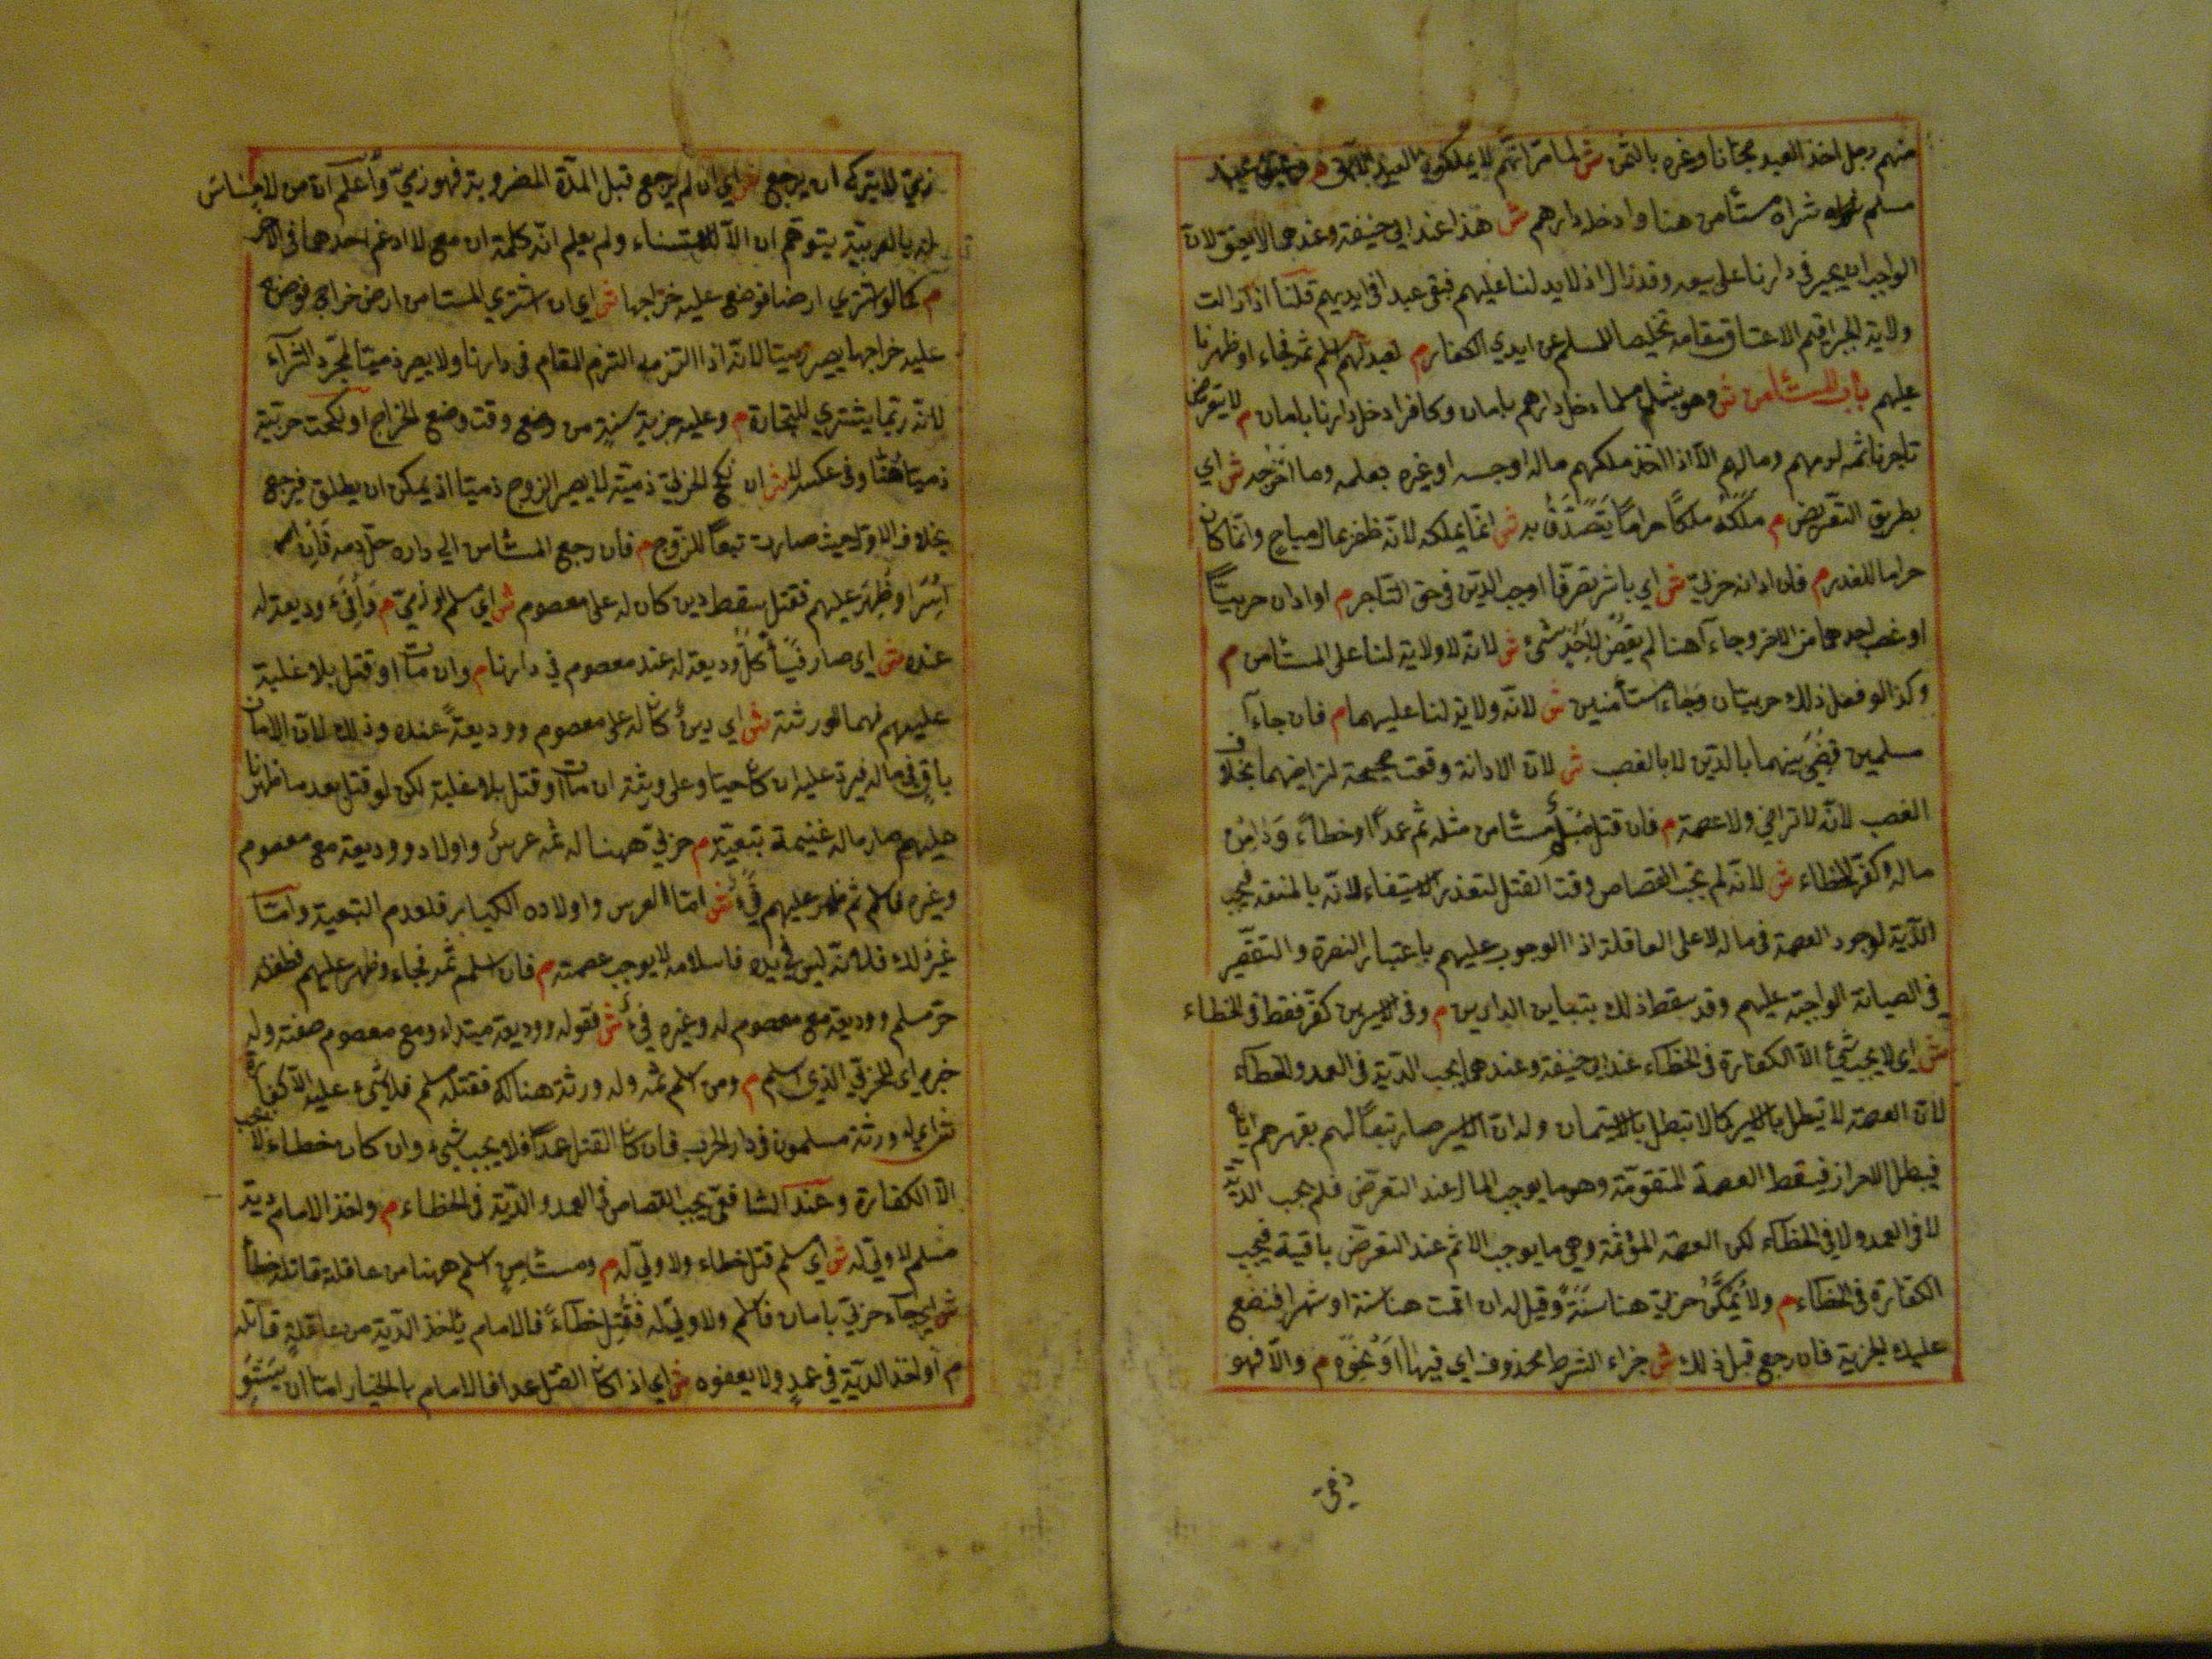 منهم رجل اخذ العبد مجّانا وغيره بالثمن ش لما مرّ انّهم لا يملكون العبد الآبق م وعتق عبد
مسلم شراه مستأمن هنا وادخله دارهم ش هذا عند ابي حنيفة وعندهما لا يعتق لانّ
الواجب ان يجبر في دارنا على بيعه وقد زال اذ لا يد لنا عليهم فبقى عبدا في ايديهم قلنا اذا زالت
ولاية الجبر اقيم الاعتاق مقامه تخليصا للمسلم عن ايدي الكفار م كعبد لهم اسلم ثمه فجاء او ظهرنا
عليهم باب المستأمن ش وهو يشمل مسلما دخل دارهم بامان وكافرا دخل دارنا بامان م لا يتعرض
تاجرنا ثمه لدمهم ومالهم الّا اذا اخذ ملكهم ماله او حبسه او غيره بعلمه وما اخرجه ش اي
بطريق التعرّض م ملكه ملكًا حرامًا يتصدّق به ش انّما يملكه لانّه ظفر بمال مباح وانّما كان
حراما للغدر م فان ادانه حربيّ ش اي باشر تصرّفا اوجب الدّين في حق التّاجر م او ادان حربيًّا
او غصب احدهما من الاخر وجاءآ هنا لم يقض لاحد شئ ش لانّه لا ولاية لنا على المستأمن م
وكذا لو فعل ذلك حربيّان وجاءا مستأمنين ش لانّه ولاية لنا عليهما م فان جاءآ
مسلمين قضى بينهما بالدّين لا بالغصب ش لانّ الادانة وقعت صحيحة لتراضيهما بخلاف
الغصب لانّه لا تراضي ولا عصمة م فان قتل مسلم مستأمن مثله ثم عمدًا او خطاءً ودى من
ماله وكفّر للخطاء ش لانّه لم تجب القصاص وقت القتل لتعذر الاستيفاء لانّه بالمنعة فيجب
الدّية لوجود العصمة في ماله لا على العاقلة اذا الوجوب عليهم باعتبار النصرة والتقصير
في الصيانة الواجبة عليهم وقد سقط ذلك بتباين الدارين م وفي الاسيرين كفّر فقط في الخطاء
ش اي لا يجب شئ الّا الكفّارة في الخطاء عند ابي حنيفة وعندهما يجب الدّية في العمد والخطاء
لانّ العصمة لا تبطل بالاسر كما لا تبطل بالاستيمان وله انّ الاسير صار تبعًا لهم بقهرهم ايّاه
فيبطل الاحراز فيسقط العصمة المتقوّمة وهو ما يوجب المال عند التعرّض فلم يجب الدّية
لا في العمد ولا في الخطاء لكن العصمة المؤثمة وهي ما يوجب الاثم عند التعرّض باقية فيجب
الكفّارة في الخطاء م ولا يمكّن حربيّ هنا سنةً وقيل له ان اقمت هنا سنة او شهرا فنضع
عليك الجزية فان رجع قبل ذلك ش جزاء الشرط محذوف اي فبها او نحوه م والّا فهو
ذمّي
ذميّ لا يترك ان يرجع ش اي ان لم يرجع قبل المدّة المضروبة فهو ذميّ واعلم انّ من لا مساس
له بالعربيّة يتوهّم ان الّا للاستثناء ولم يعلم انّه كلمة ان مع لا ادغم احدهما في الاخر
م كما لو اشترى ارضا فوضع عليه خراجها ش اي ان اشترى المستامن ارض خراج فوضع
عليه خراجها يصير ذميّا لانّه اذا التزمه التزم المقام في دارنا ولا يصير ذميّا بمجرّد الشراء
لانّه ربّما يشترى للتجارة م وعليه جزية سنةٍ من وضع وقت وضع الخراج او نكحت حربيّة
ذميّا هنا وفي عكسه لا ش ان نكح الحربيّ ذميّة لا يصير الزوج ذميّا اذ يمكن ان يطلق فيرجع
بخلاف الاول حيث صارت تبعًا للزّوج م فان رجع المستأمن الى داره حلّ دمه فان
اسر او ظهر عليهم فقتل سقط دين كان له على معصوم ش اي مسلم او ذميّ م وافئ وديعة له
عنده ش اي صار فيئًا كلّ وديعة له عند معصوم في دارنا م وان مات او قتل بلا غلبة
عليهم فهما لورثته ش اي دينٌ كان له على معصوم ووديعةً عنده وذلك لانّ الامان
باقٍ في ماله فيردّ عليه ان كان حيّا وعلى ورثته ان مات او قتل بلا غلبة لكن لو قتل بعد ما ظهرنا
عليهم صار ماله غنيمة بتبعيّته م حربيّ ههنا له ثمه عرسٌ واولاد ووديعة مع معصوم
وغيره فاسلم ثم ظهر عليهم فيءٌ ش امّا العرس واولاده الكبار فلعدم التبعية وامّا
غير ذلك فلانّه ليس في يده فاسلامه لا يوجب عصمته م فان اسلم ثمه فجاء وظهر عليهم فطفله
حرّ مسلم ووديعة مع معصوم له وغيره فيء ش فقوله ووديعة مبتداء ومع معصوم صفته وله
خبره اي للحربيّ الذي اسلم م ومن اسلم ثمه وله ورثة هناك فقتله مسلم فلا شيء عليه الّا كفّارة
ش اي له ورثة مسلمون في دار الحرب فان كان القتل عمدًا فلا يجب شيء وان كان خطاء لا يجب
الّا الكفارة وعند الشافعيّ يجب القصاص في العمد والدّية في الخطاء م واخذ الامام دية
مسلم لا وليّ له ش اي مسلم قتل خطاء ولا وليّ له م ومستأمنٍ اسلم ههنا من عاقلة قاتله خطأ
ش اي جاء حربيّ بامان فاسلم ولا وليّ له فقُتل خطاءً فالامام يأخذ الدّية من عاقلةٍ قاتله
م او اخذ الدّيّة في عمدٍ ولا يعفوه ش اي اذا كان القتل عمدا فالامام بالخيار امّا ان يستو